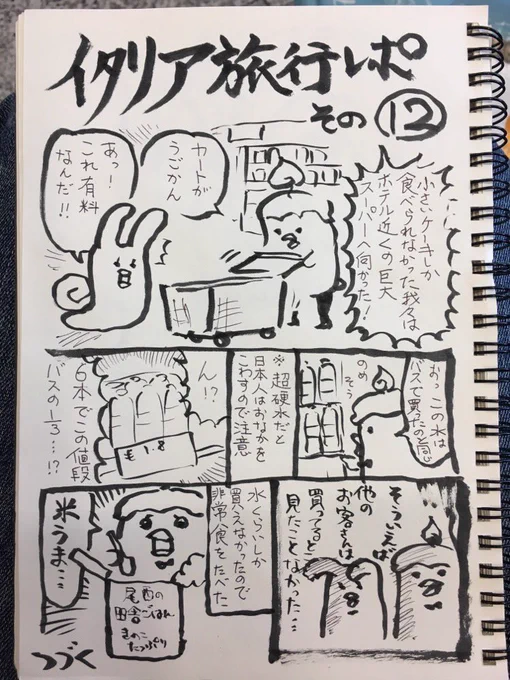 イタリア旅行レポ
その⑫
小さいケーキしか
食べられなかった我々は
ホテル近くの巨大
スーパーへ向かった！
カートが
うごかん
あっ！
これ有料
なんだ！！
おっこの水は
バスで買ったのと同じ
のめそう
※超硬水だと
日本人はおなかを
こわすので注意
ん！？
€1.8
6本でこの値段
バスの1/3…！？
そういえば
他の
お客さんは
買ってるとこ
見たことなかった…
水くらいしか
買えなかったので
非常食をたべた
尾西の
田舎ごはん
きのこ
たっぷり
米うま…
つづく